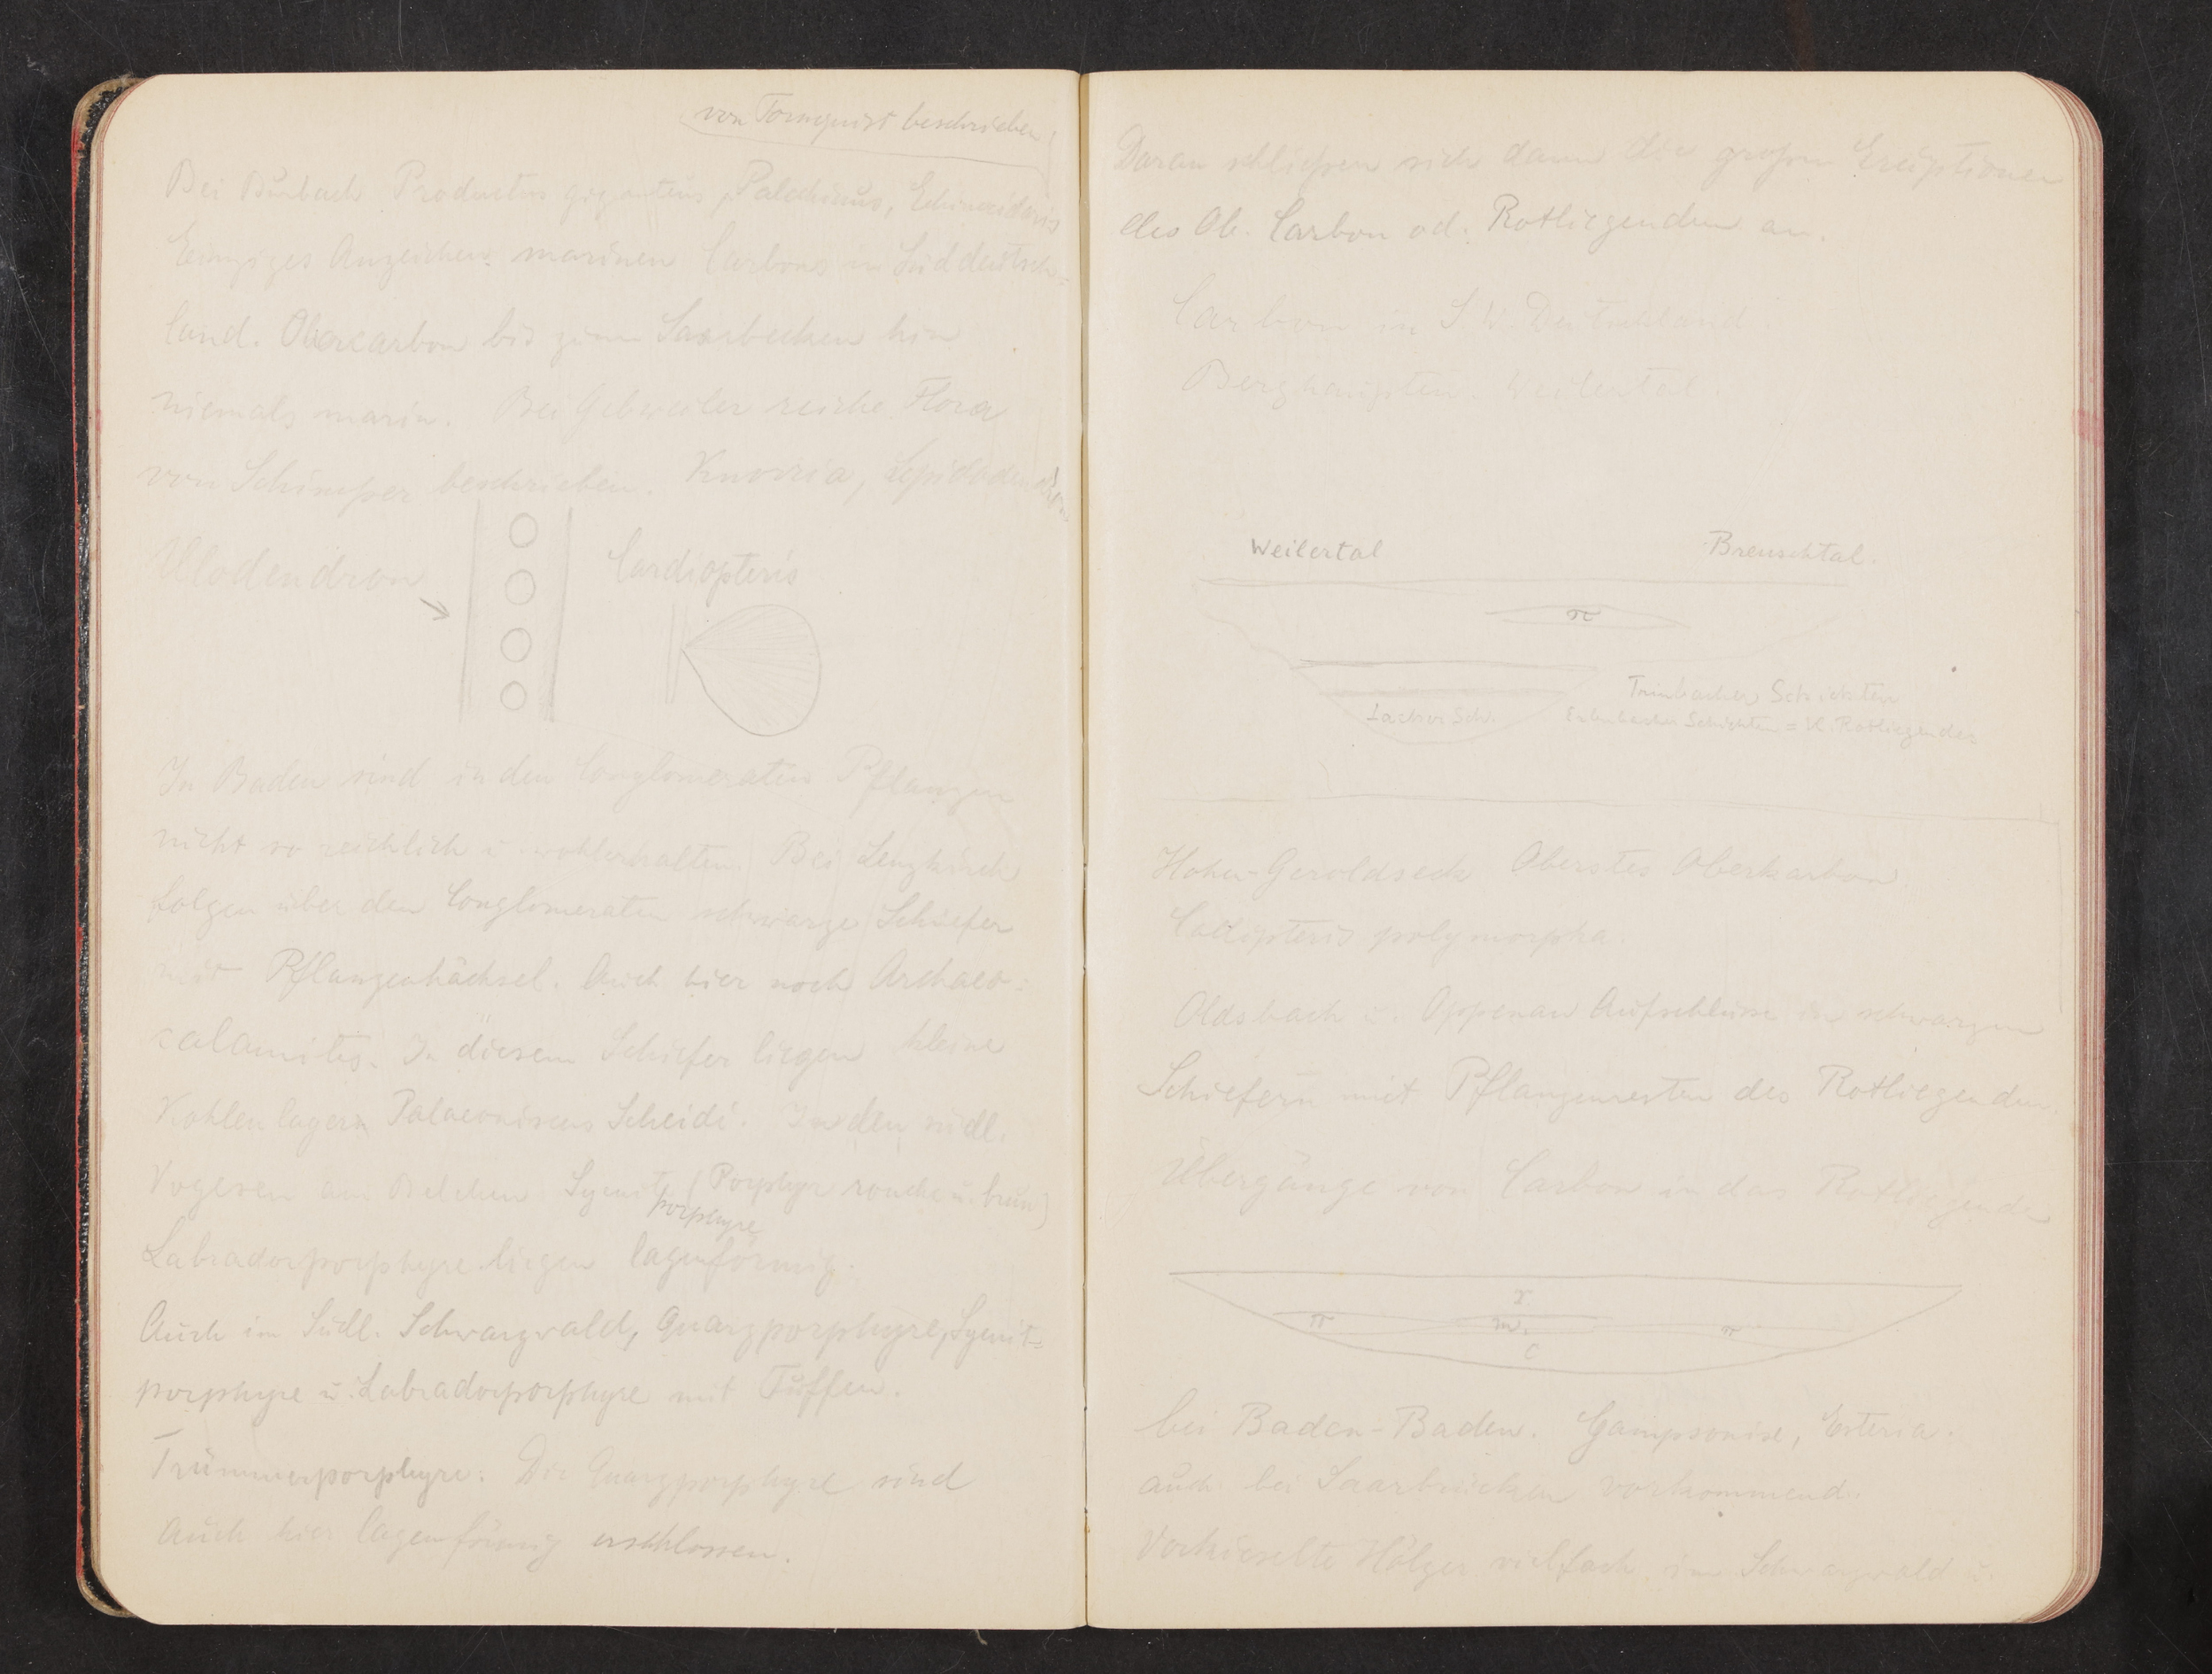 von Tornquist beschrieben
Bei Burbach Productus giganteus, Palechinus, Echinocidaris
Einziges Anzeichen marinen Carbons in Süddeutsch=
land. Obercarbon bis zum Saarbecken hin
niemals marin. Bei Gebweiler reiche Flora
von Schimper beschrieben. Knorria, Lepidodendron
Ulodendron
Cardiopteris
In Baden sind in den Conglomeraten Pflanzen
nicht so reichlich u. wohlerhalten. Bei Lenzkirch
folgen über den Conglomeraten schwarze Schiefer
mit Pflanzenhäcksel. Auch hier noch Archaeo=
calamites. In diesem Schiefer liegen kleine
Kohlenlagern Palaeoniscus Scheidi. In den südl.
Vogesen am Belchen Syenit (Porphyr rouche u. brun)
porphyre
Labradorporphyre liegen lagenförmig.
Auch im Südl. Schwarzwald, Quarzporphyre, Syenit=
porphyre u. Labradorporphyre mit Tuffen.
Trümmerporphyre. Die Quarzporphyre sind
Auch hier lagenförmig erschlossen.
Daran schließen sich dann die großen Eruptionen
des Ob. Carbon od. Rotliegenden an.
Carbon in S.W. Deutschland.
Berghaupten. Weilertal.
Weilertal
Breuschtal.
π
Trimbacher Schichten
Lacher Sch.
Erlenbacher Schichten = U. Rotliegendes
Hohen-Geroldseck Oberstes Oberkarbon
Callipteris polymorpha.
Oldsbach u. Oppenau Aufschlüsse in schwarzen
Schiefern mit Pflanzenresten des Rotliegenden.
Übergänge von Carbon in das Rotliegende
r
π m. π
c
bei Baden-Baden. Gampsonixe, Esteria.
auch bei Saarbrücken vorkommend.
Verkieselte Hölzer vielfach im Schwarzwald u.